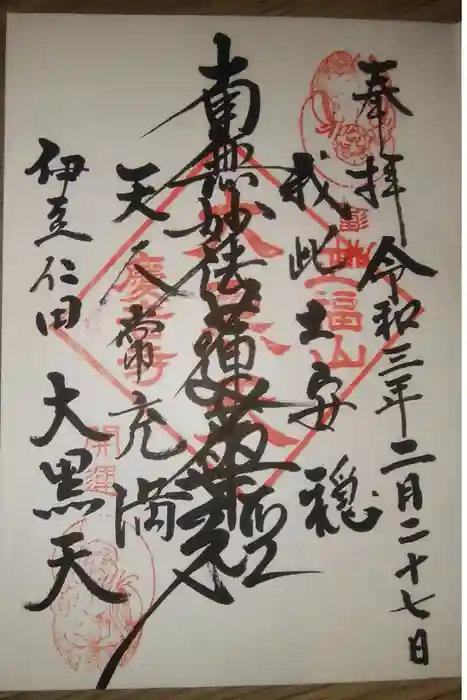 奉拝 令和三年二月二十七日
我此土安穏
南無妙法蓮華経
天人常充満
伊豆仁田 大黒天
福山
慶音寺
開運